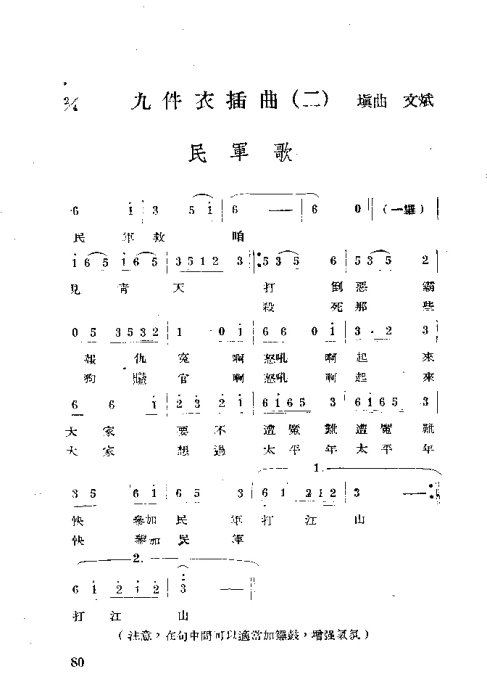 2/4 九件衣插曲(二) 塡曲 文斌
民軍歌
6 i | 3 5 i | 6 — | 6 0 || (一鑼) |
民 軍 救 咱
i 6 5 i 6 5 | 3 5 1 2 3 |: 5 3 5 6 | 5 3 5 2 |
見 青 天 打 倒 惡 霸
殺 死 那 些
0 5 3 5 3 2 | 1 0 i | 6 6 0 i | 3 · 2 3 |
報 仇 寃 啊 怒吼 啊 起 來
狗 贓 官 啊 怒吼 啊 起 來
6 6 i | 2 3 2 i | 6 i 6 5 3 | 6 i 6 5 3 |
大 家 要 不 遭 魔 難 遭 魔 難
大 家 想 過 太 平 年 太 平 年
1.
3 5 6 i | 6 5 3 | 6 i 2 i 2 | 3 — :|
快 參加 民 軍 打 江 山
快 參加 民 軍
2.
6 i 2 i 2 | 3 — ||
打 江 山
(注意,在句中間可以適當加鑼鼓,增强氣氛)
80